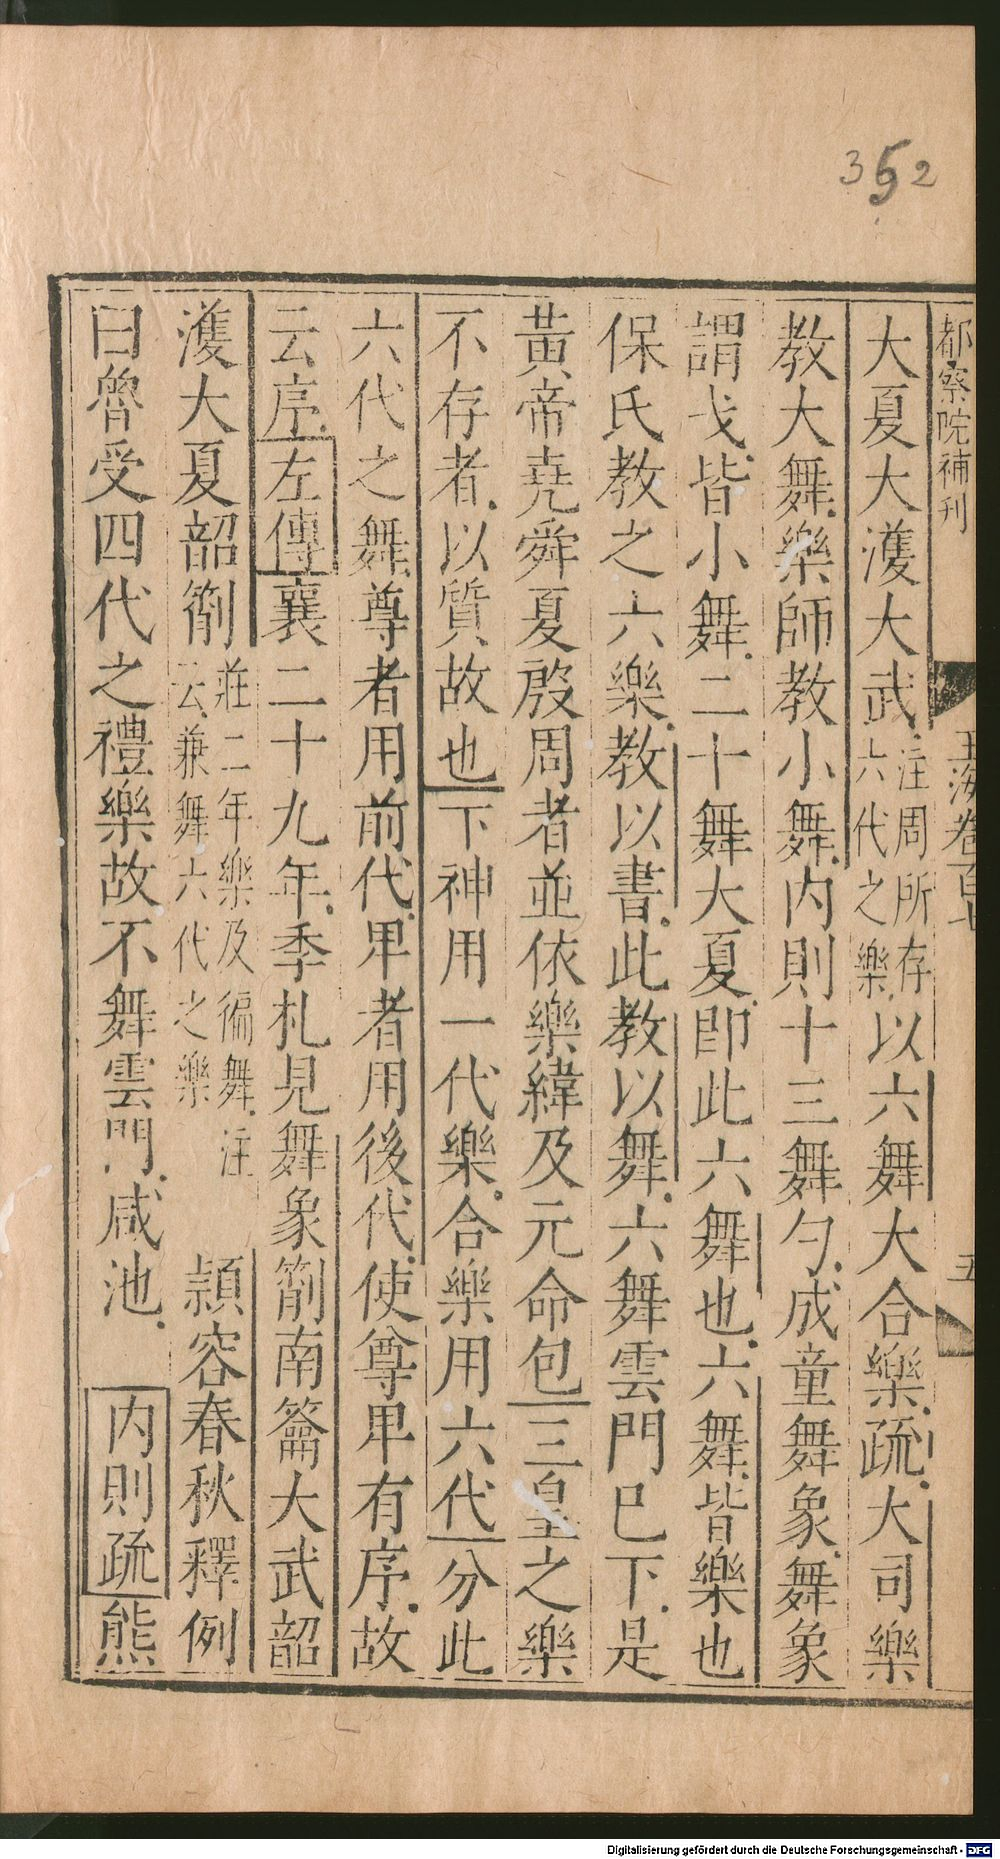 352
都察院補刊
玉海卷百七
五
大夏大濩大武注周所存六代之樂以六舞大合樂疏大司樂
教大舞樂師教小舞內則十三舞勺成童舞象舞象
謂戈皆小舞二十舞大夏卽此六舞也六舞皆樂也
保氏教之六樂教以書此教以舞六舞雲門已下是
黃帝堯舜夏殷周者並依樂緯及元命包三皇之樂
不存者以質故也下神用一代樂合樂用六代分此
六代之舞尊者用前代卑者用後代使尊卑有序故
云序左傳襄二十九年季札見舞象箾南籥大武韶
濩大夏韶箾莊二年樂及徧舞注云兼舞六代之樂 頴容春秋釋例
曰魯受四代之禮樂故不舞雲門咸池 內則疏熊
Digitalisierung gefördert durch die Deutsche Forschungsgemeinschaft - DFG